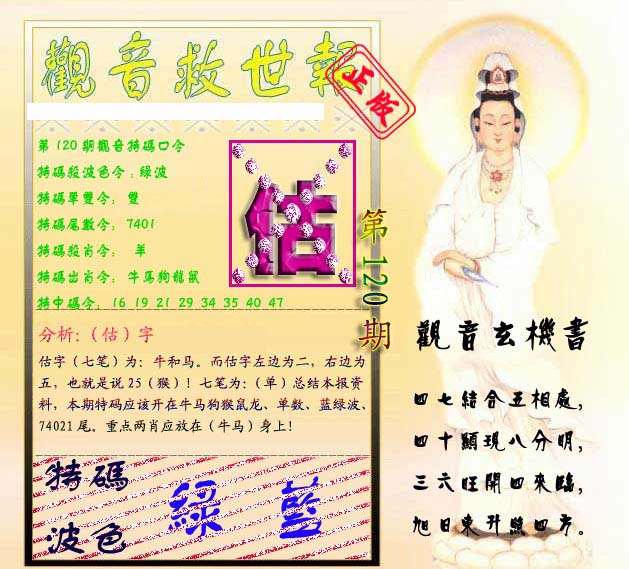 觀音救世報
正版
第120期觀音特碼口令
特碼殺波色令：綠波
特碼單雙令： 雙
特碼尾數令： 7401
特碼殺肖令： 羊
特碼出肖令： 牛馬狗龍鼠
特中碼令： 16 19 21 29 34 35 40 47
估
第120期
分析:（估）字
估字（七笔）为：牛和马。而估字左边为二，右边为
五，也就是说25（猴）！七笔为:（单）总结本报资
料，本期特码应该开在牛马狗猴鼠龙、单数、蓝绿波、
74021尾。重点两肖应放在（牛马）身上！
特碼
波色
綠 藍
觀音玄機書
四七結合五相處，
四十顯現八分明，
三六旺開四來臨，
旭日東升照四方。